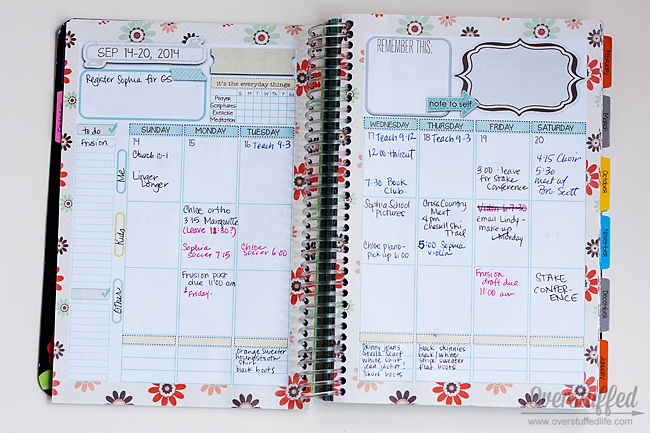 SEP 14-20, 2014
Register Sophia for GS
it's the everyday things
S M T W T F S
Prayer
Scriptures
Exercise
Meditation
to do
frusion
Me
Kids
Other
SUNDAY
MONDAY
TUESDAY
14
15
16 Teach 9-3
Church 10-1
Linger
Longer
Chloe ortho
3:15 Marquette
(Leave 12:30?)
Sophia
soccer 7:15
Chloe
Soccer 6:00
Frusion post
due 11:00 am
Friday
orange sweater
houndstooth
shirt
black boots
REMEMBER THIS:
note to self
WEDNESDAY
THURSDAY
FRIDAY
SATURDAY
17 Teach 9-12
18 Teach 9-3
19
20
12:00 Haircut
7:30 Book
Club
3:00 - leave
for Stake
Conference
4:15 Choir
5:30
meet w/
Bro Scott
Sophia School
pictures
Chloe piano-
pick up 6:00
Cross Country
Meet
4pm
Trail
5:00 Sophia
violin
Violin 6-7:30
email Lindy-
make up
Monday
Frusion
draft due
11:00 am
STAKE
CONFER-
ENCE
skinny jeans
scarf
white shirt
jean jacket
short boots
black skinnies
black/white
stripe sweater
flat boots
February
March
October
November
December
January
Overstuffed
www.overstuffedlife.com